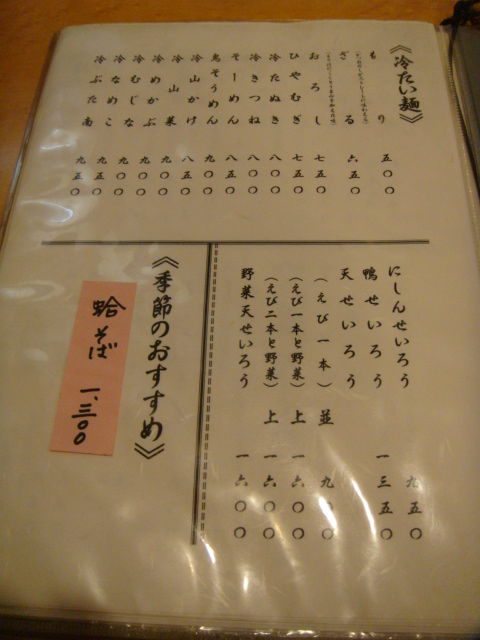 《冷たい麺》
もり 五〇〇
ざる 六五〇
おろし 七五〇
ひやむぎ 七五〇
冷たぬき 八〇〇
冷きつね 八〇〇
そーめん 八五〇
鳥そうめん 九〇〇
冷山かけ 八五〇
冷山菜 九〇〇
冷めかぶ 九〇〇
冷むじな 九〇〇
冷なめこ 九〇〇
冷ぶた南 九五〇
にしんせいろう 九五〇
鴨せいろう 一三五〇
天せいろう
(えび一本) 並 九〇〇
(えび一本と野菜) 上 一六〇〇
(えび二本と野菜) 上 一六〇〇
野菜天せいろう 一六〇〇
《季節のおすすめ》
蛤そば 一、三〇〇